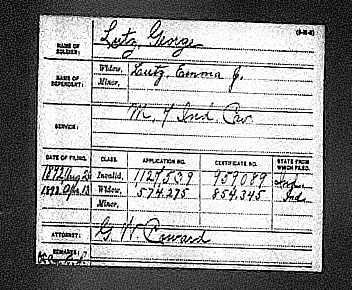 (3-H-2)
NAME OF SOLDIER: Lutz, George
NAME OF DEPENDENT: Widow, Lutz, Emma J.
Minor,
SERVICE: M. 7 Ind. Cav.
DATE OF FILING. CLASS. APPLICATION NO. CERTIFICATE NO. STATE FROM WHICH FILED.
1892 Aug Invalid, 1127,539 959089
Widow, 574,275 854,345 Ind.
Minor,
ATTORNEY: G W. Coward
REMARKS: